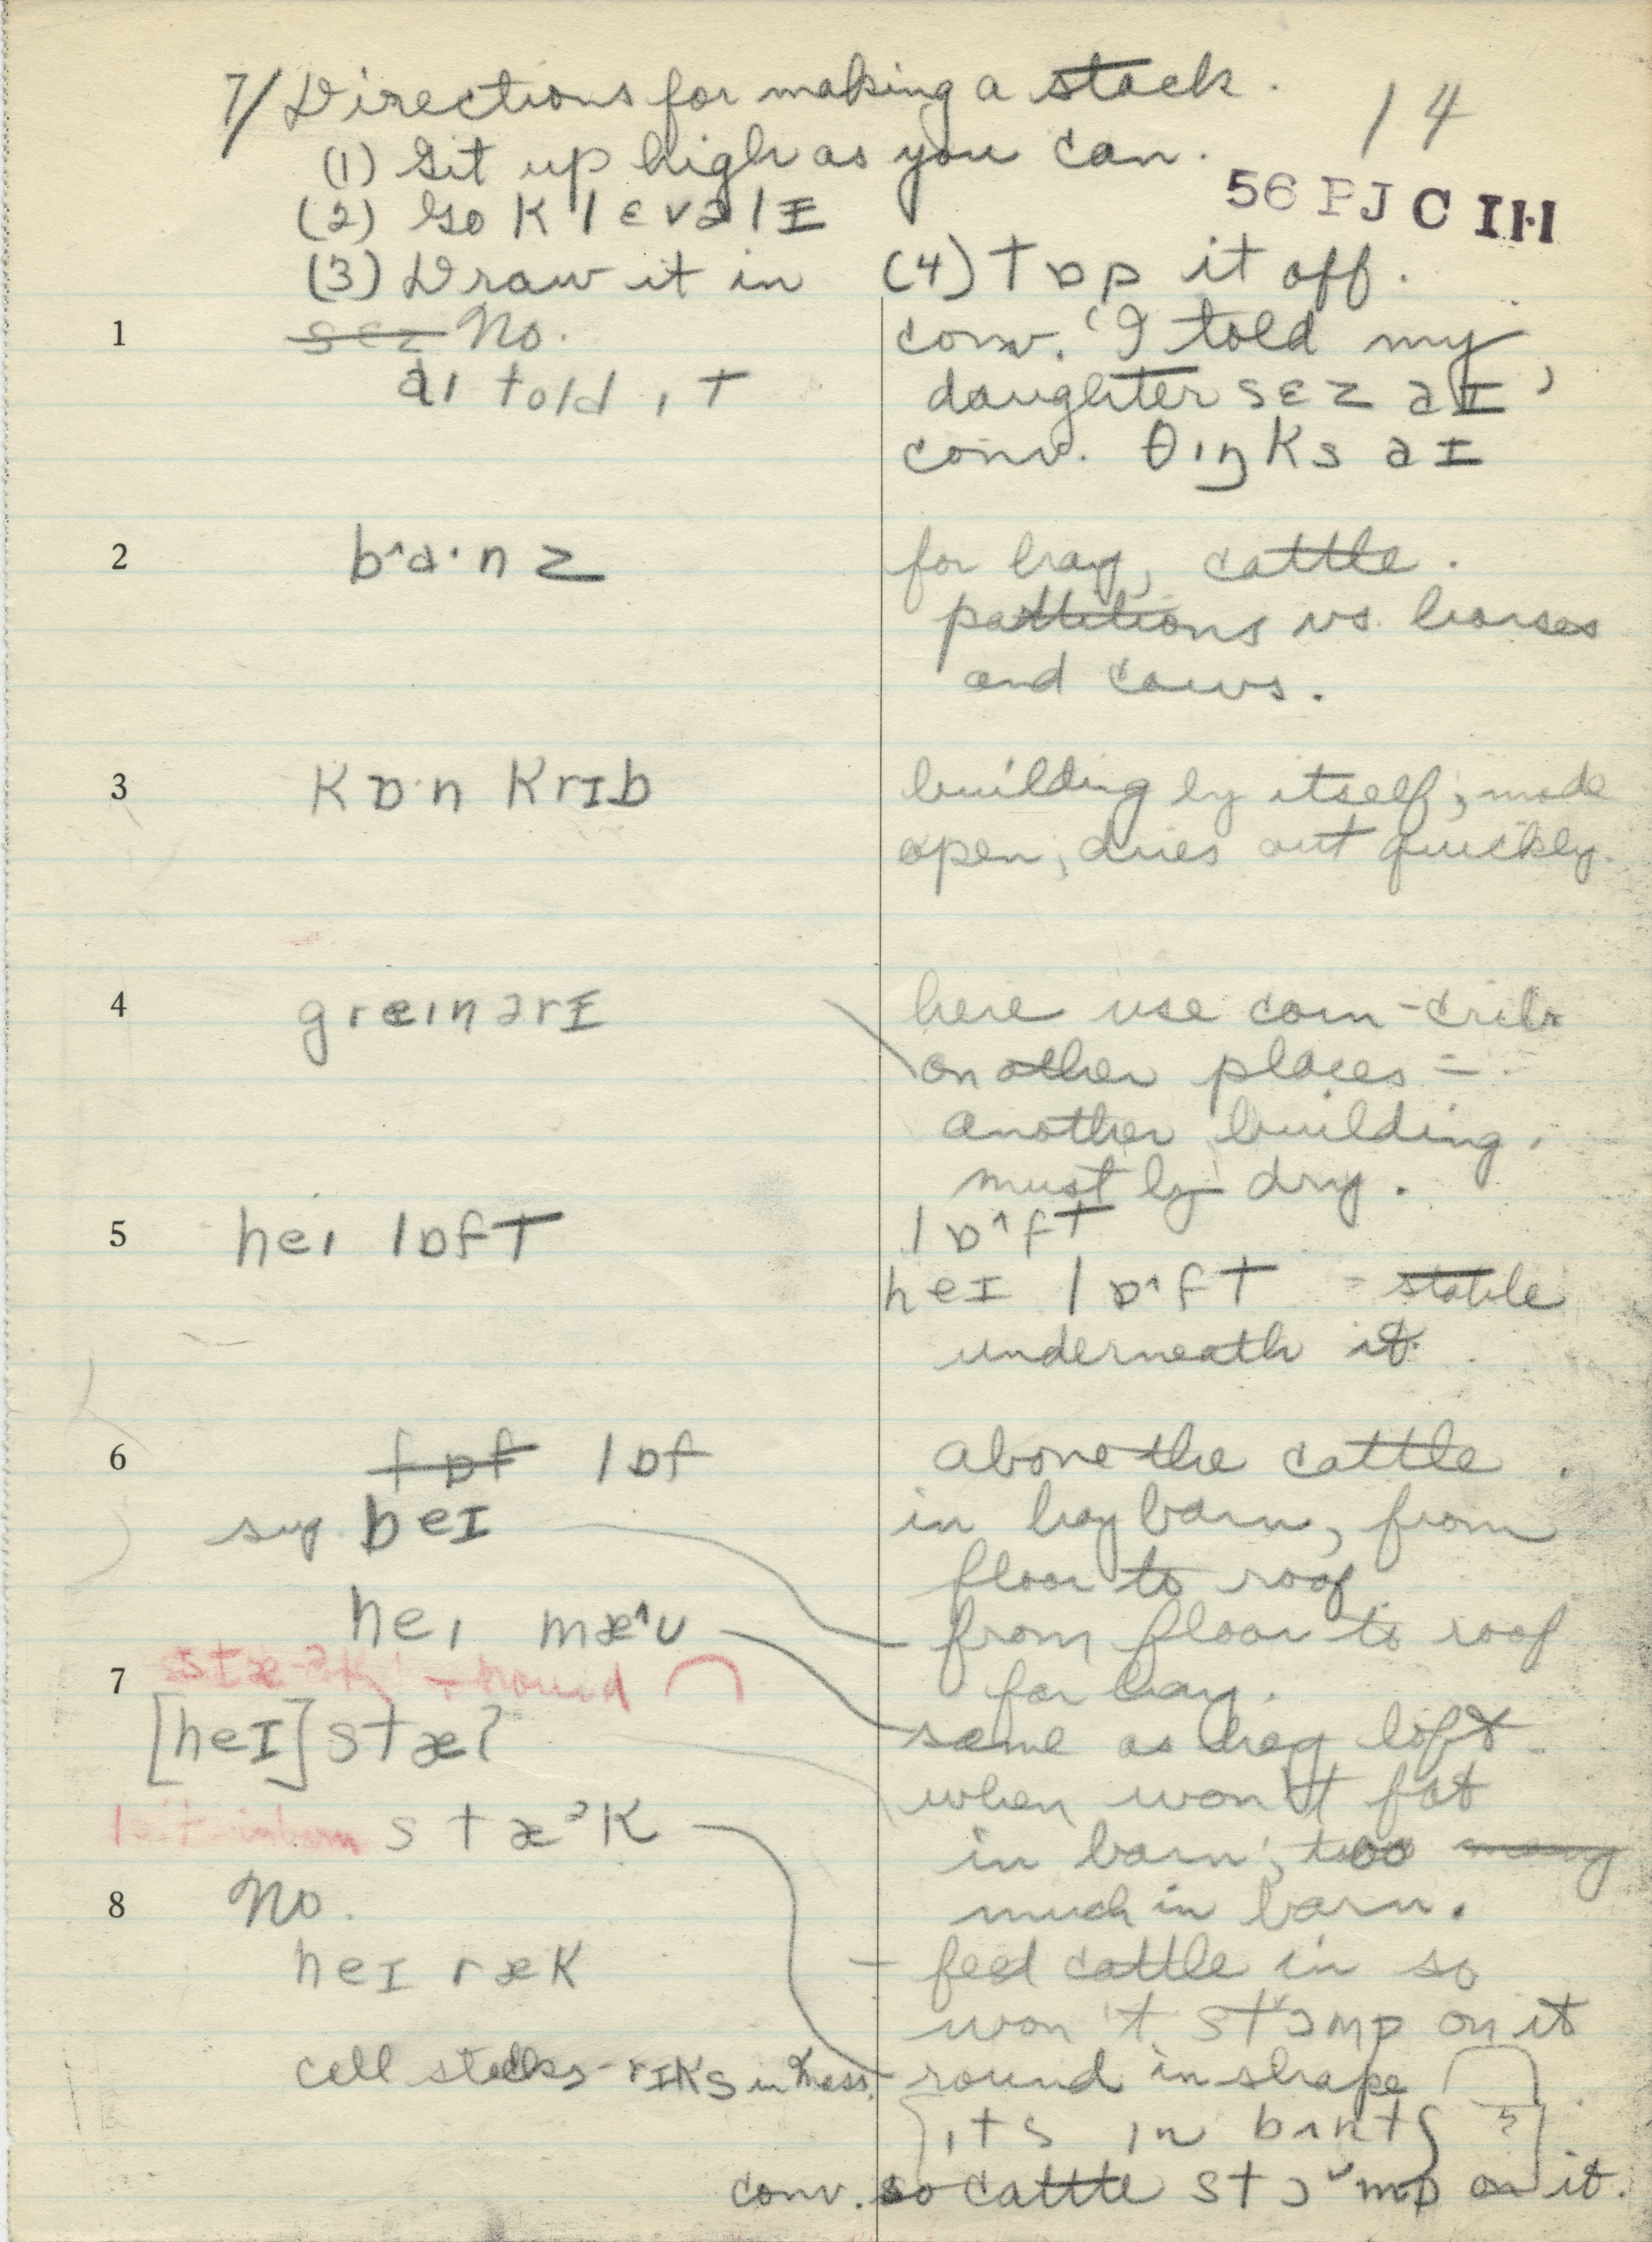 7/ Directions for making a stack.
14
(1) Git up high as you can.
56 PJC IH
(2) Go klɛvəlɪ
(3) Draw it in (4) tɒp it off.
1 sɛz No. conv. 'I told my
aɪ told ɪt daughter sɛz aɪ'
conv. θɪŋks aɪ
2 b^a·nz for hay, cattle.
partitions vs. horses
and cows.
3 kɒ·n krɪb building by itself; made
open; dries out quickly.
4 greɪnərɪ here use corn-cribs
on other places =
another building.
must be dry.
5 heɪ lɒft lɒ^ft
heɪ lɒ^ft = stable
underneath it.
6 fɒf lɒf above the cattle.
sug. beɪ in hay barn, from
floor to roof.
heɪ mæ^ʊ from floor to roof
for hay.
7 round
[heɪ] stæʔ same as hay loft
when won't fit
stæᵊk in barn; too many
8 No. much in barn.
heɪ ræk feed cattle in so
won't stɔmp on it
cell stacks - rɪks in Mass. round in shape
ɪts ɪn bʌnt
conv. so cattle stɔmp on it.